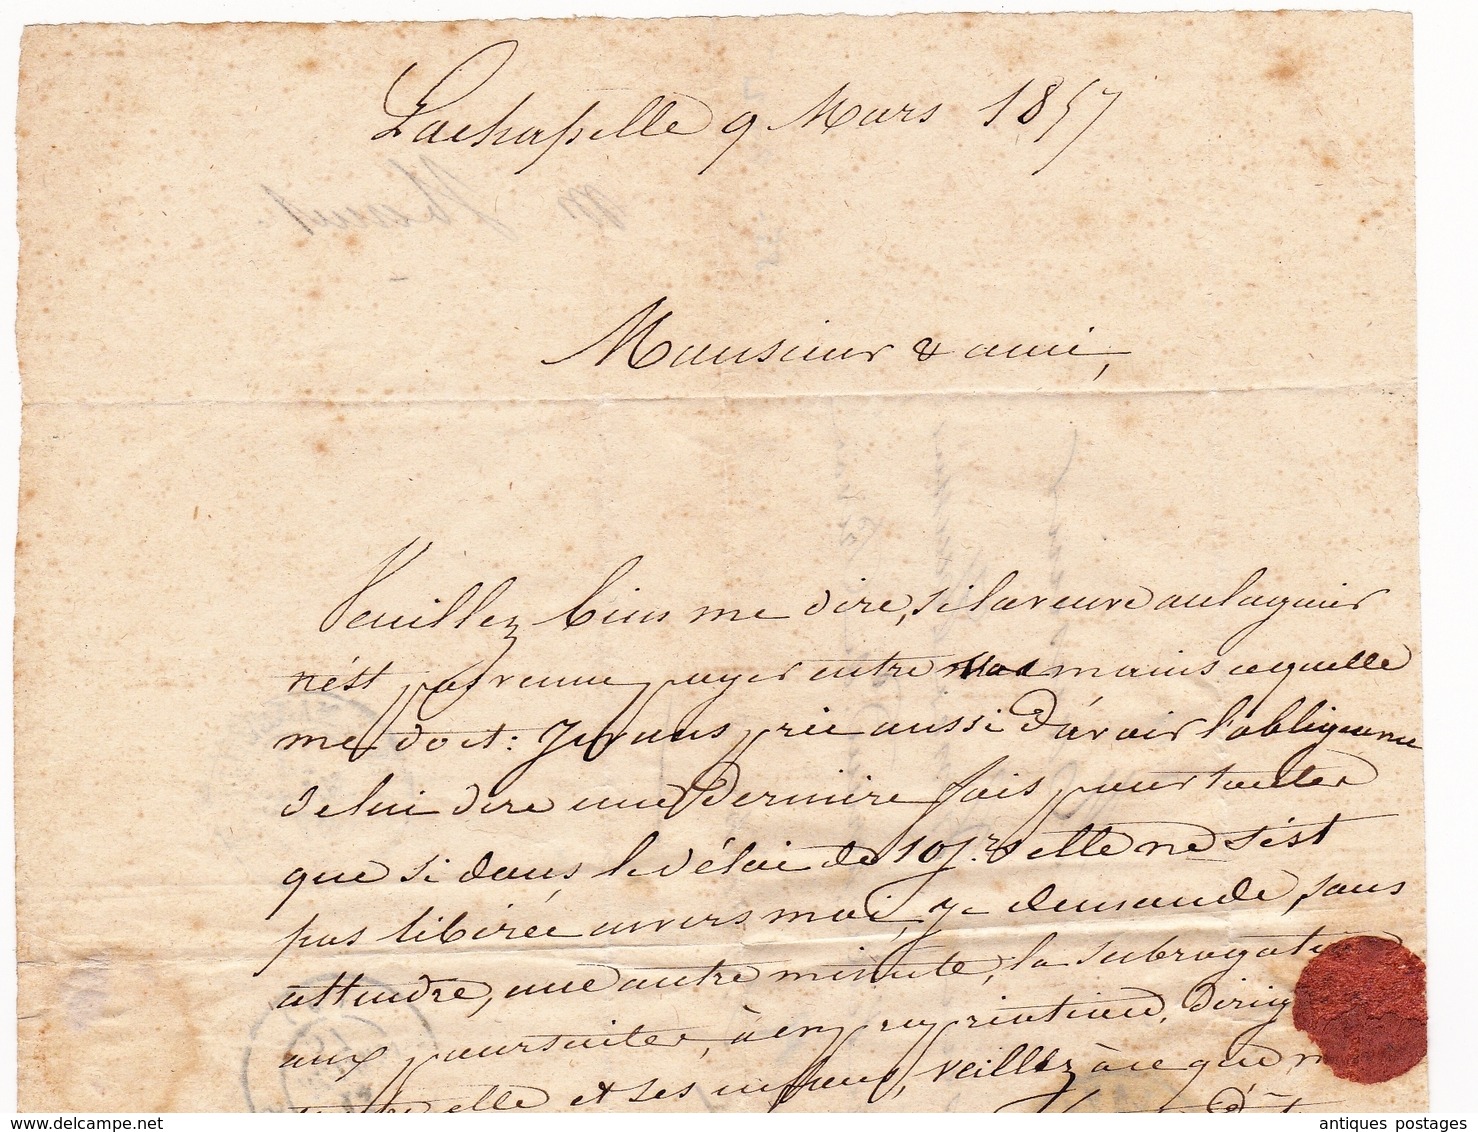 Lachapelle 9 Mars 1857
Monsieur & ami,
Veuillez bien me dire, si la veuve
n'est pas venue payer entre vos mains ce quelle
me doit : Je vous prie aussi d'avoir l'obligeance
de lui dire une dernière fois pour toutes
que si dans le délai de 10 jrs elle ne s'est
pas libérée envers moi, je demande, sans
attendre, une autre minute, la subrogation
aux poursuites, à en expropriation, dirig
elle et ses enfans, veillez à ce que
www.delcampe.net
antiques postages